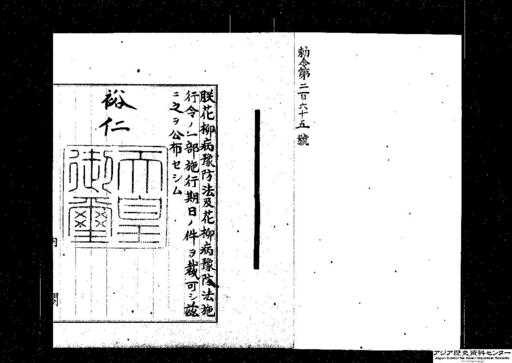 勅令第二百六十五號
朕花柳病豫防法及花柳病豫防法施
行令ノ一部施行期日ノ件ヲ裁可シ玆
ニ之ヲ公布セシム
裕仁
天皇
御璽
内
閣
アジア歴史資料センター
Japan Center for Asian Historical Records